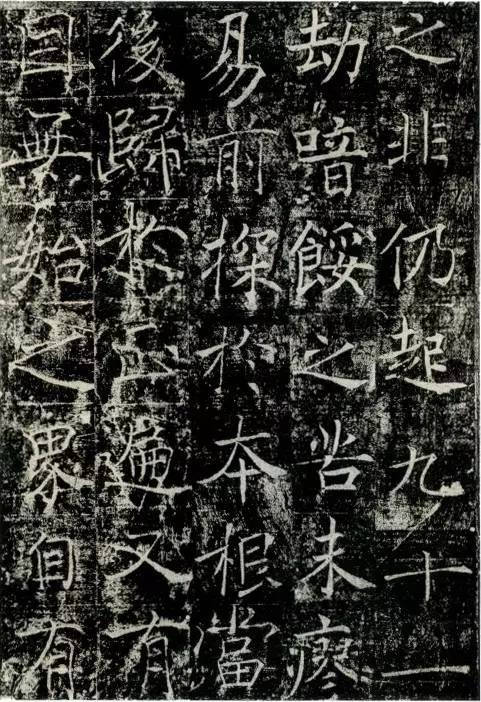 之非仍起九十一
劫暗餒之苦未瘳
易前探於本根當
後歸於正遍又有
因無始之累自有